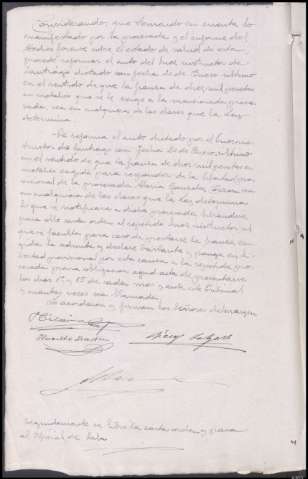 Considerando: que tomando en cuenta lo
manifestado por la procesada y el informe del
Médico forense sobre el estado de salud de esta,
procede reformar el auto del Juez instructor de
Santiago dictado con fecha de Enero último
en el sentido de que la fianza de dos mil pesetas
en metálico que se le exige a la mencionada procesada
sea en cualquiera de las clases que la Ley
determina.
Se reforma el auto dictado por el Juez instructor
de Santiago con fecha de Enero último
en el sentido de que la fianza de dos mil pesetas en
metálico exigida para responder de la libertad provisional
de la procesada María González
en cualquiera de las clases que la Ley determina
lo que se notificará a dicha procesada, librándose
para ello carta orden al repetido Juez instructor, al
que se faculta para cuando prestare la fianza
la admita y declare bastante y ponga en libertad
provisional por esta causa a la repetida procesada
previa obligación apud acta de presentarse
los días 1º y 15 de cada mes ante este Tribunal
y cuantas veces sea llamada.
Lo acordaron y firman los Señores del margen
Seguidamente se libró la carta orden y pasa
al Oficial de Sala